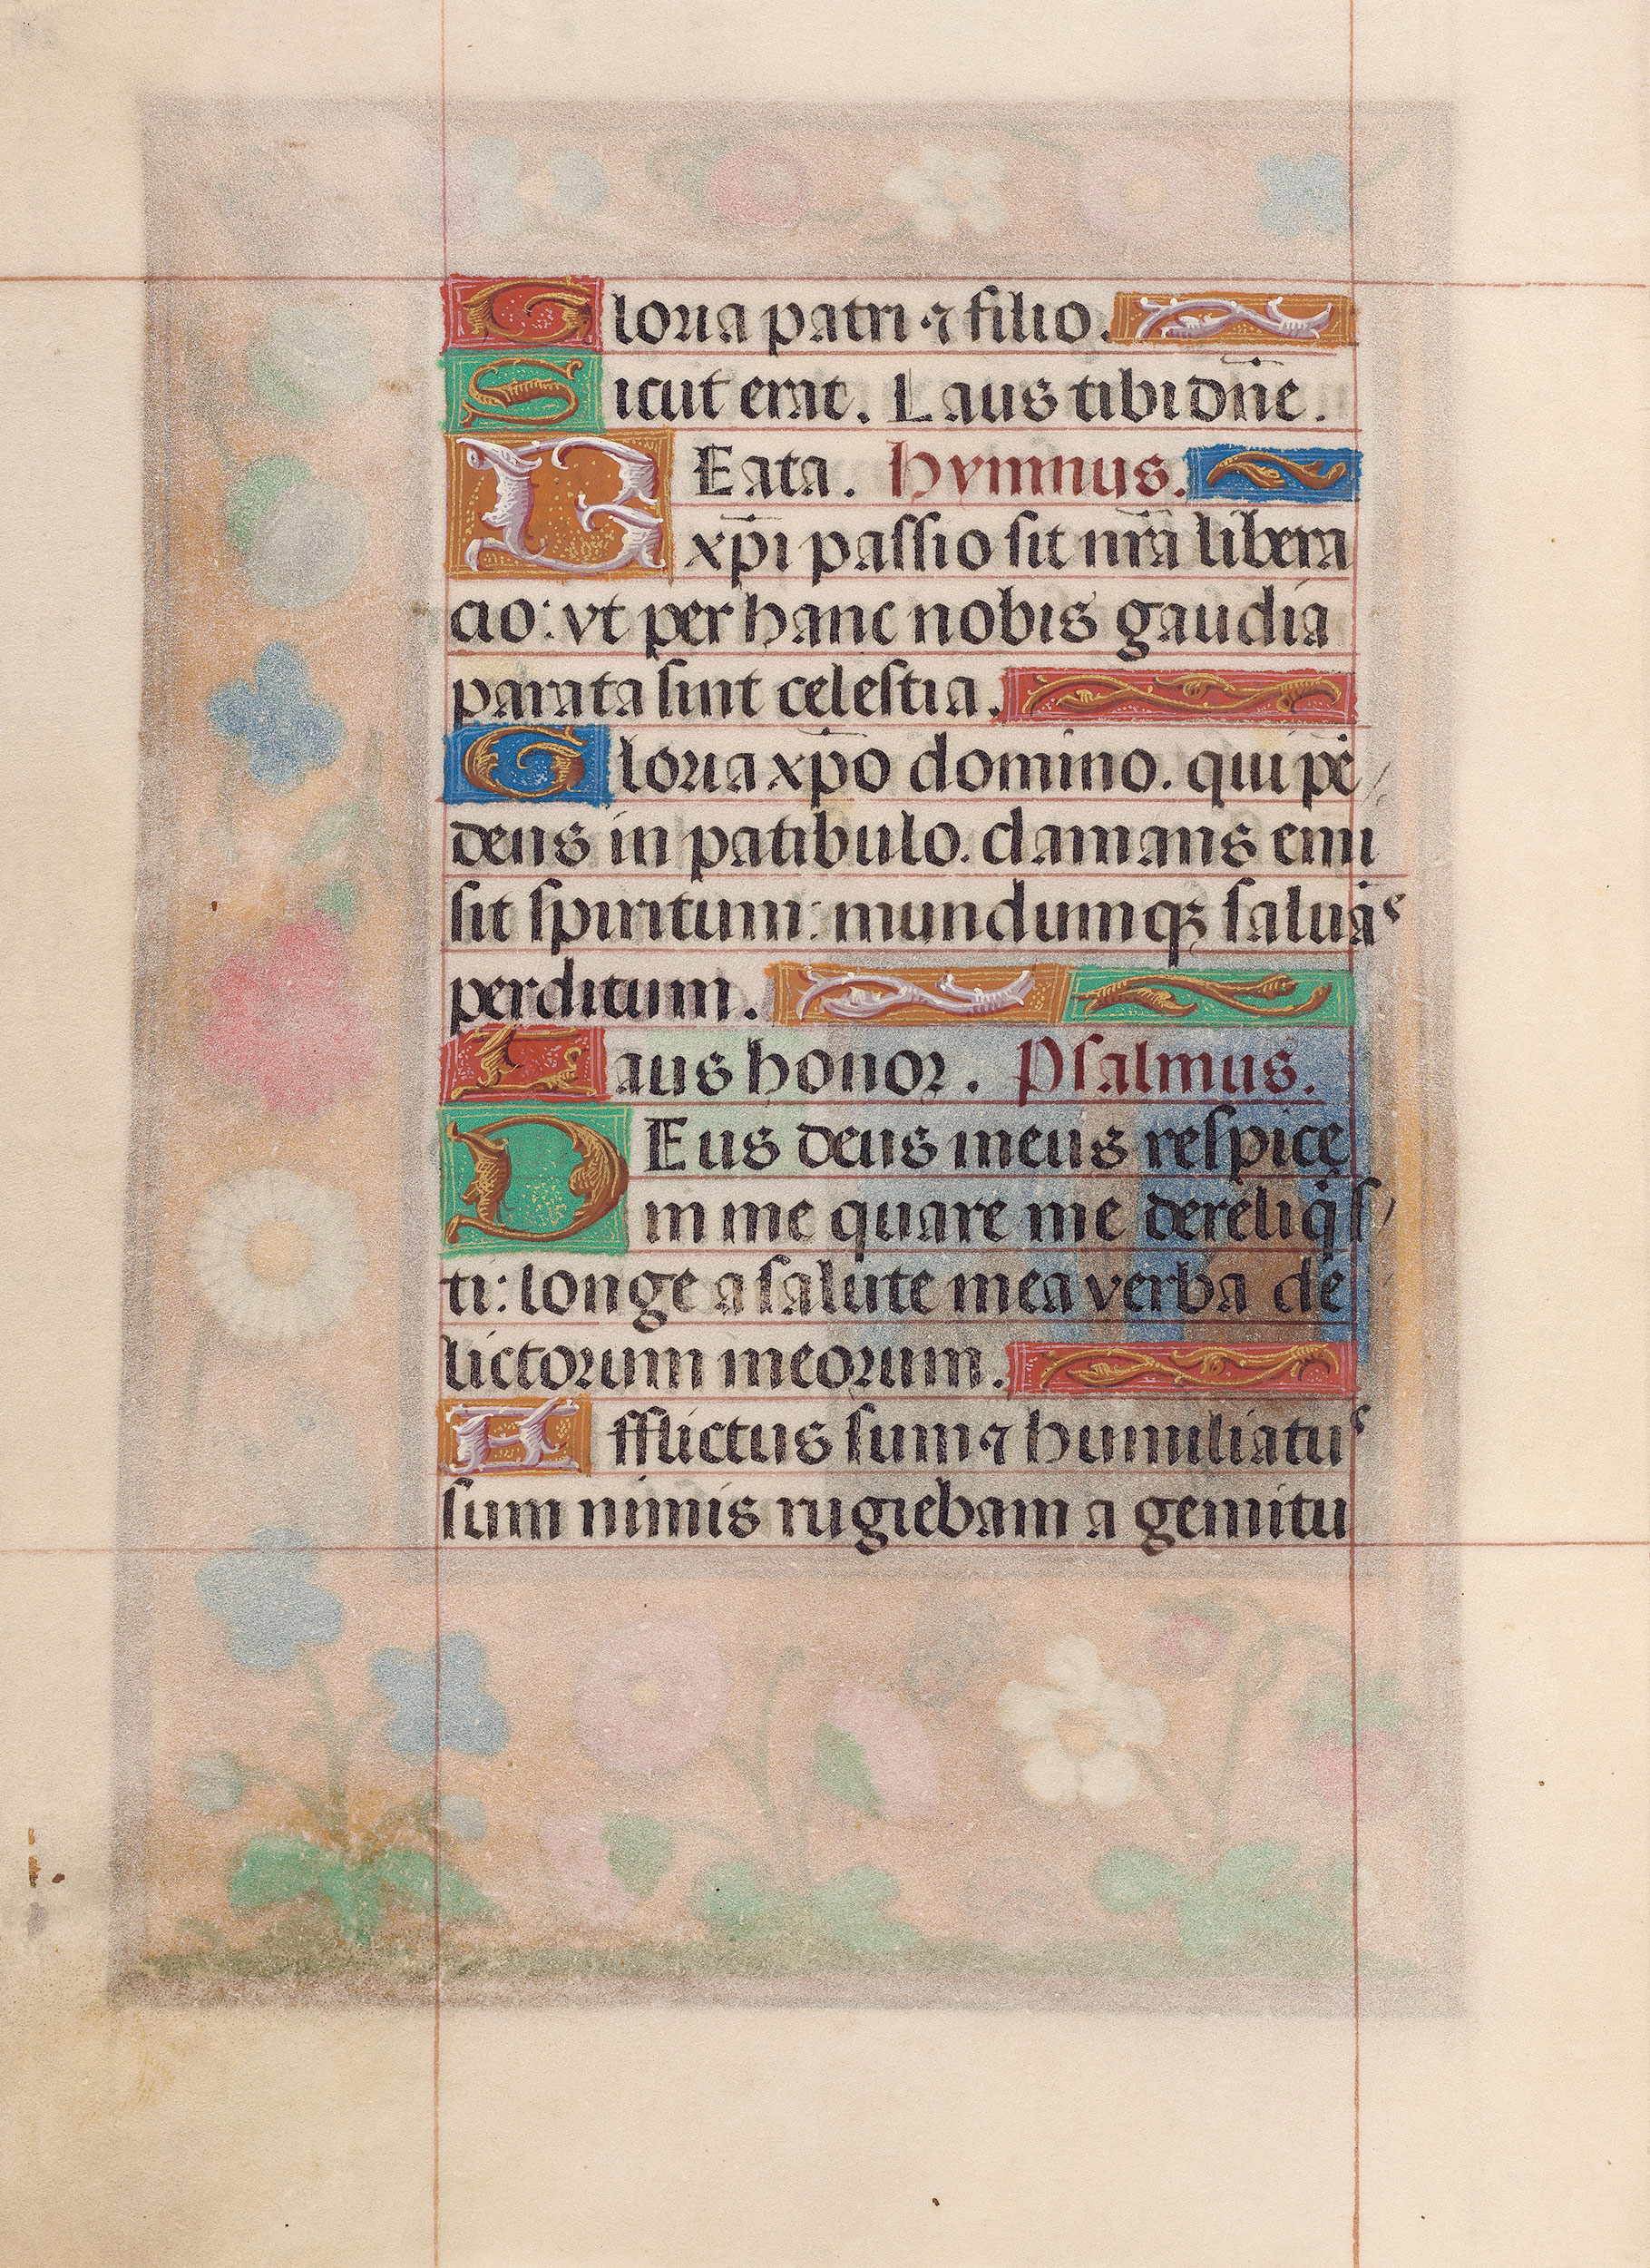 Gloria patri ⁊ filio.
Sicut erat. Laus tibi dn̄e.
BEata. Hymnus.
xp̄i passio sit nr̄a libera
cio: vt per hanc nobis gaudia
parata sint celestia.
Gloria xp̄o domino. qui pē
dens in patibulo. clamans emi
sit spiritum: mundumqꝫ saluās
perditum.
Laus honor. Psalmus.
DEus deus meus respice
in me quare me dereliq̇s
ti: longe a salute mea verba de
lictorum meorum.
Afflictus sum ⁊ humiliatus
sum nimis rugiebam a gemitu